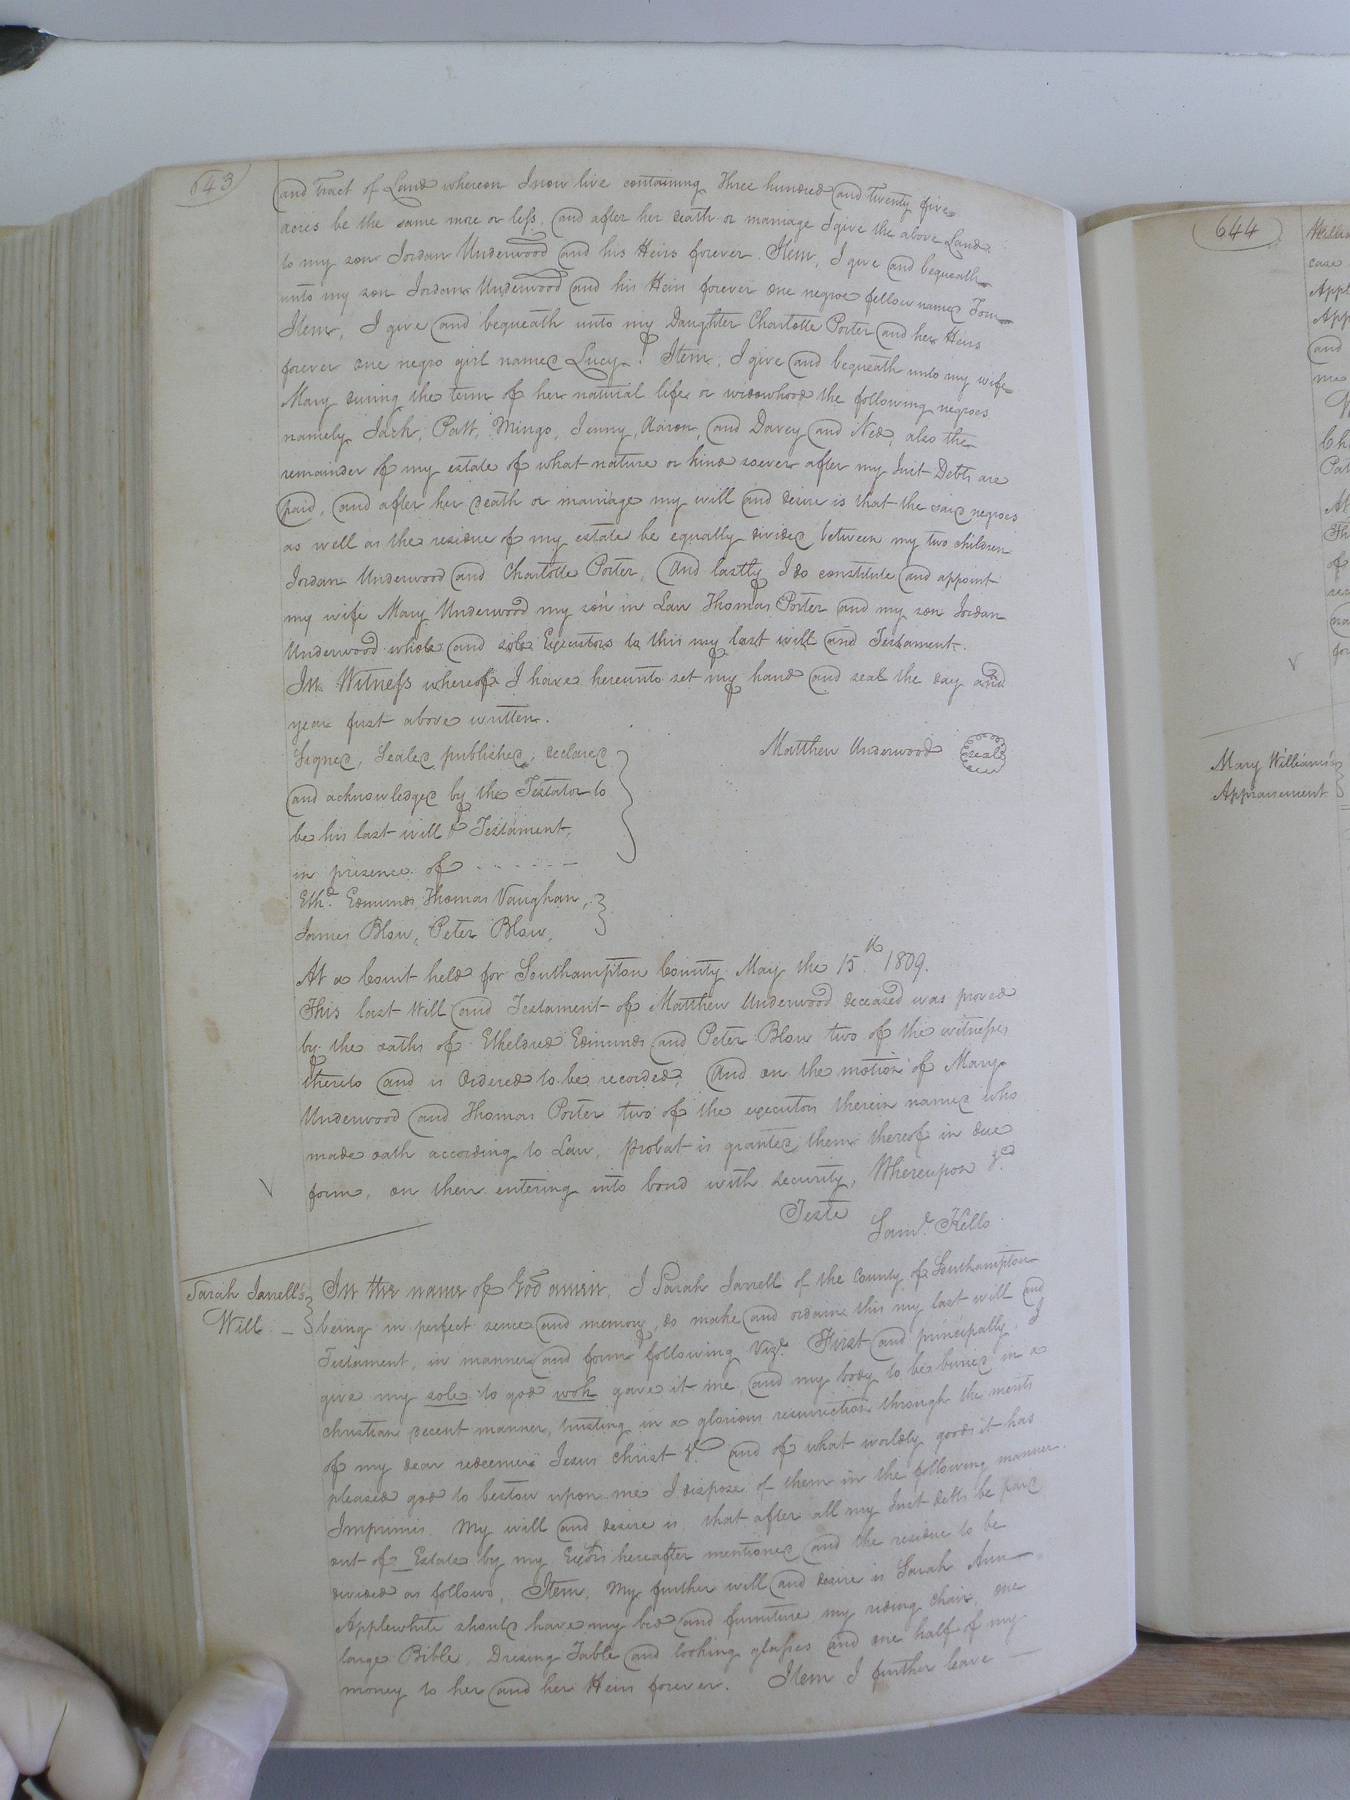 643
and tract of Land whereon I now live containing Three hundred and twenty five
acres be the same more or less, and after her death or marriage I give the above Land
to my son Jordan Underwood and his Heirs forever. Item, I give and bequeath
unto my son Jordan Underwood and his Heirs forever one negroe fellow named Tom
Item, I give and bequeath unto my Daughter Charlotte Porter and her Heirs
forever one negro girl named Lucy. Item, I give and bequeath unto my wife
Mary during the term of her natural life or widowhood the following negroes
namely Jack, Patt, Mingo, Jenny, Aaron, and Davey and Ned, also the
remainder of my estate of what nature or kind soever after my Just Debts are
paid, and after her death or marriage my will and desire is that the said negroes
as well as the residue of my estate be equally divided between my two children
Jordan Underwood and Charlotte Porter, And lastly I do constitute and appoint
my wife Mary Underwood my son in Law Thomas Porter and my son Jordan
Underwood whole and sole Executors to this my last will and Testament.
In Witness whereof I have hereunto set my hand and seal the day and
year first above written.
Signed, Sealed published, declared
and acknowledged by the Testator to
be his last will & Testament,
in presence of
Matthew Underwood seal
Ethd. Edmunds, Thomas Vaughan,
James Blow, Peter Blow,
At a Court held for Southampton County May the 15th 1809.
This last Will and Testament of Matthew Underwood deceased was proved
by the oaths of Etheldred Edmunds and Peter Blow two of the witnesses
thereto and is Ordered to be recorded, And on the motion of Mary
Underwood and Thomas Porter two of the executors therein named who
made oath according to Law, probat is granted them thereof in due
form, on their entering into bond with security, Whereupon &c
Teste
Saml. Kello
Sarah Jarrell's
Will
In the name of God amen, I Sarah Jarrell of the County of Southampton
being in perfect sence and memory, do make and ordain this my last will and
Testament, in manner and form following Vizt. First and principally, I
give my sole to god woh gave it me and my body to be buried in a
christian decent manner, trusting in a glorious resurrection through the merits
of my dear redeemer Jesus Christ &c and of what worldly goods it has
pleased god to bestow upon me I dispose of them in the following manner.
Imprimis. My will and desire is that after all my Just debts be paid
out of Estate by my Exors hereafter mentioned and the residue to be
divided as follows, Item, My further will and desire is Sarah Ann
Applewhite should have my bed and furniture my riding chair, one
large Bible, Dresing Table and looking glasses and one half of my
money to her and her Heirs forever. Item I further leave
644
Mary Williams's
Appraisement